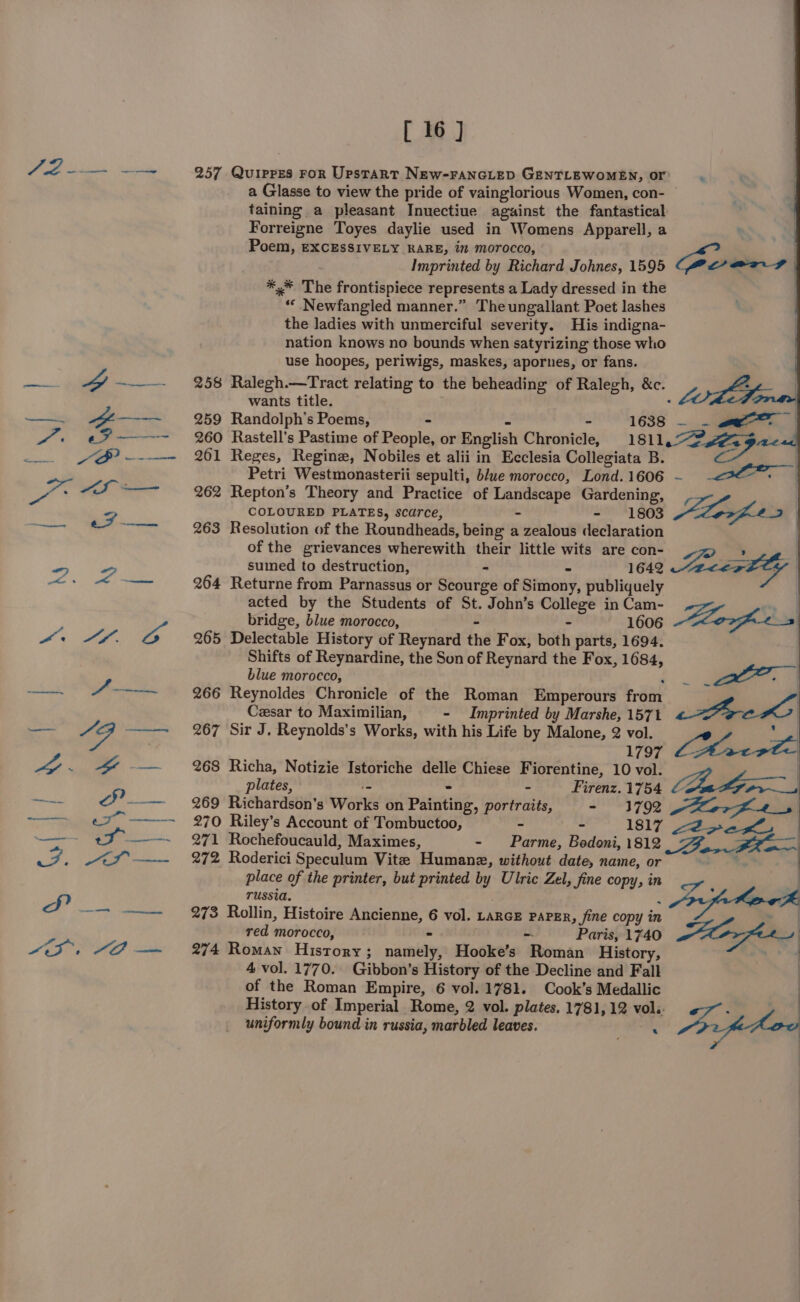 [ 16 ]
12 — —
257 QUIPPES FOR UPSTART NEW-FANGLED GENTLEWOMEN, or
a Glasse to view the pride of vainglorious Women, con-
taining a pleasant Inuectiue against the fantastical
Forreigne Toyes daylie used in Womens Apparell, a
Poem, EXCESSIVELY RARE, in morocco,
Imprinted by Richard Johnes, 1595
*** The frontispiece represents a Lady dressed in the
“ Newfangled manner.” The ungallant Poet lashes
the ladies with unmerciful severity. His indigna-
nation knows no bounds when satyrizing those who
use hoopes, periwigs, maskes, apornes, or fans.
— 4 — 258 Ralegh.—Tract relating to the beheading of Ralegh, &c.
wants title. -
259 Randolph's Poems, - - - 1638
7. 9 — 260 Rastell's Pastime of People, or English Chronicle, 1811.
— 18 — 261 Reges, Reginæ, Nobiles et alii in Ecclesia Collegiata B.
Petri Westmonasterii sepulti, blue morocco, Lond. 1606 -
7. 15 — 262 Repton's Theory and Practice of Landscape Gardening,
COLOURED PLATES, scarce, - - 1803
263 Resolution of the Roundheads, being a zealous declaration
of the grievances wherewith their little wits are con-
sumed to destruction, - - 1642
2. 2 — 264 Returne from Parnassus or Scourge of Simony, publiquely
acted by the Students of St. John's College in Cam-
bridge, blue morocco, - - 1606
265 Delectable History of Reynard the Fox, both parts, 1694.
Shifts of Reynardine, the Son of Reynard the Fox, 1684,
blue morocco,
266 Reynoldes Chronicle of the Roman Emperours from
Cæsar to Maximilian, - Imprinted by Marshe, 1571
— 19 — 267 Sir J. Reynolds's Works, with his Life by Malone, 2 vol.
1797
4. 4 — 268 Richa, Notizie Istoriche delle Chiese Fiorentine, 10 vol.
plates, - - - Firenz. 1754
— 8 — 269 Richardson's Works on Painting, portraits, - 1792
270 Riley's Account of Tombuctoo, - - 1817
— 5 — 271 Rochefoucauld, Maximes, - Parme, Bodoni, 1812
3. 15 — 272 Roderici Speculum Vitæ Humanæ, without date, name, or
place of the printer, but printed by Ulric Zel, fine copy, in
russia.
8 — — 273 Rollin, Histoire Ancienne, 6 vol. LARGE PAPER, fine copy in
red morocco, - - Paris, 1740
15. 10 — 274 ROMAN HISTORY; namely, Hooke's Roman History,
4 vol. 1770. Gibbon's History of the Decline and Fall
of the Roman Empire, 6 vol. 1781. Cook's Medallic
History of Imperial Rome, 2 vol. plates. 1781, 12 vol.
uniformly bound in russia, marbled leaves.